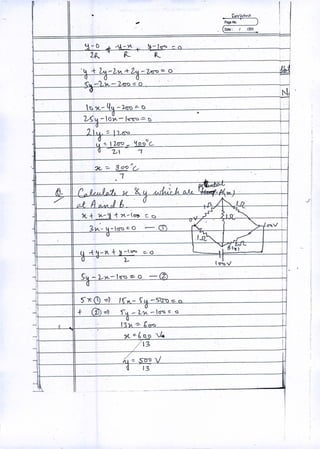 Page No.
Date: / /
y-0 + y-x + y-100 = 0
2R R R
y + 2y-2x + 2y-200 = 0
5y-2x-200 = 0.
10x-4y-200 = 0
25y-10x-1000 = 0
21y = 1200
y = 1200 = 400°C
21 7
x = 300°C
7
Q. Calculate x & y which are potential
at A and B.
x + x-y + x-100 = 0
3x-y-100 = 0 — ①
y + y-x + y-100 = 0
2
5y-2x-100 = 0 — ②
5×① ⇒ 15x-5y-500 = 0
+ ② ⇒ 5y-2x-100 = 0
13x = 600
x = 600 V
13
y = 500 V
13
A(x)
1Ω
1Ω
1Ω
0V
100V
1Ω
B(y)
100V